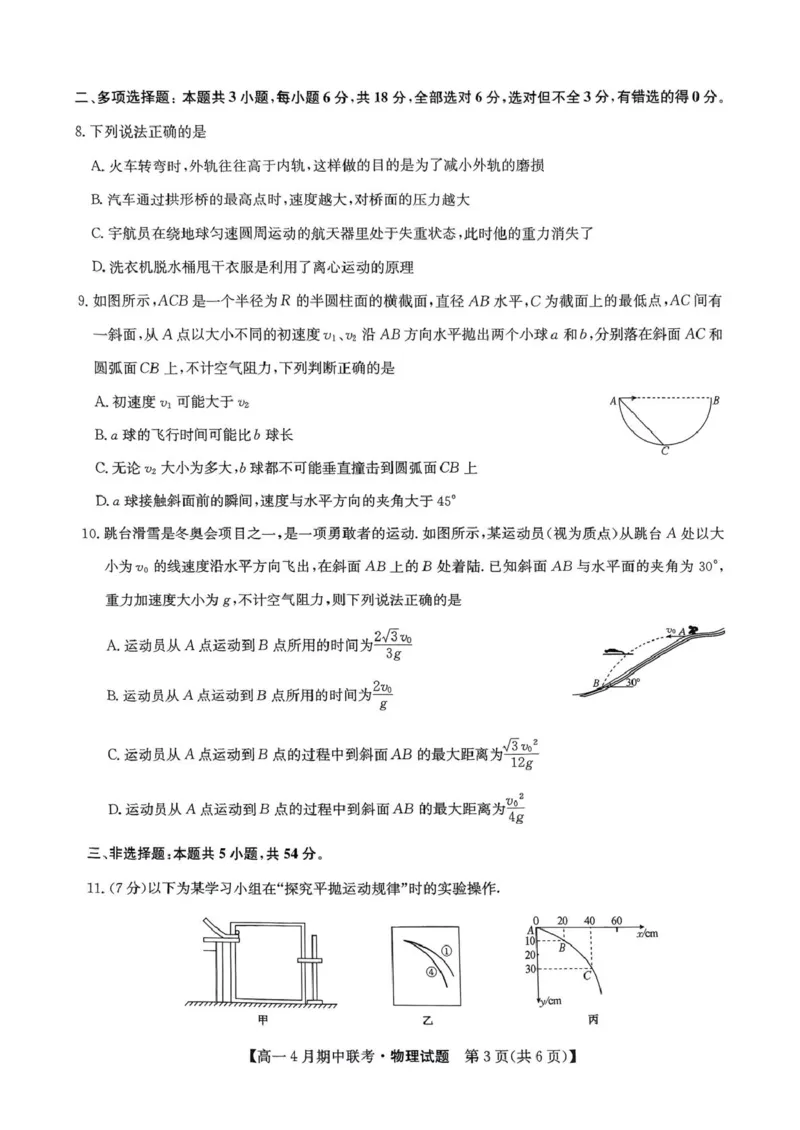 二、多项选择题：本题共3小题,每小题6分,共18分,全部选对6分,选对但不全3分,有错选的得0分。
8.下列说法正确的是
A.火车转弯时,外轨往往高于内轨,这样做的目的是为了减小外轨的磨损
B.汽车通过拱形桥的最高点时,速度越大,对桥面的压力越大
C.宇航员在绕地球匀速圆周运动的航天器里处于失重状态,此时他的重力消失了
D.洗衣机脱水桶甩干衣服是利用了离心运动的原理
9.如图所示,ACB是一个半径为R的半圆柱面的横截面,直径AB水平,C为截面上的最低点,AC间有
一斜面,从A点以大小不同的初速度v₁、v₂沿AB方向水平抛出两个小球a和b,分别落在斜面AC和
圆弧面CB上,不计空气阻力,下列判断正确的是
A.初速度v₁可能大于v₂
B.a球的飞行时间可能比b球长
C.无论v₂大小为多大,b球都不可能垂直撞击到圆弧面CB上
D.a球接触斜面前的瞬间,速度与水平方向的夹角大于45°
A B
C
10.跳台滑雪是冬奥会项目之一,是一项勇敢者的运动.如图所示,某运动员(视为质点)从跳台A处以大
小为v₀的线速度沿水平方向飞出,在斜面AB上的B处着陆.已知斜面AB与水平面的夹角为30°,
重力加速度大小为g,不计空气阻力,则下列说法正确的是
A.运动员从A点运动到B点所用的时间为2√3v₀/3g
B.运动员从A点运动到B点所用的时间为2v₀/g
C.运动员从A点运动到B点的过程中到斜面AB的最大距离为√3v₀²/12g
D.运动员从A点运动到B点的过程中到斜面AB的最大距离为v₀²/4g
v₀ A
B 30°
三、非选择题:本题共5小题,共54分。
11.(7分)以下为某学习小组在“探究平抛运动规律”时的实验操作.
① ④
0 20 40 60
x/cm
A
10 B
20
30 C
y/cm
甲 乙 丙
【高一4月期中联考·物理试题 第3页(共6页)】